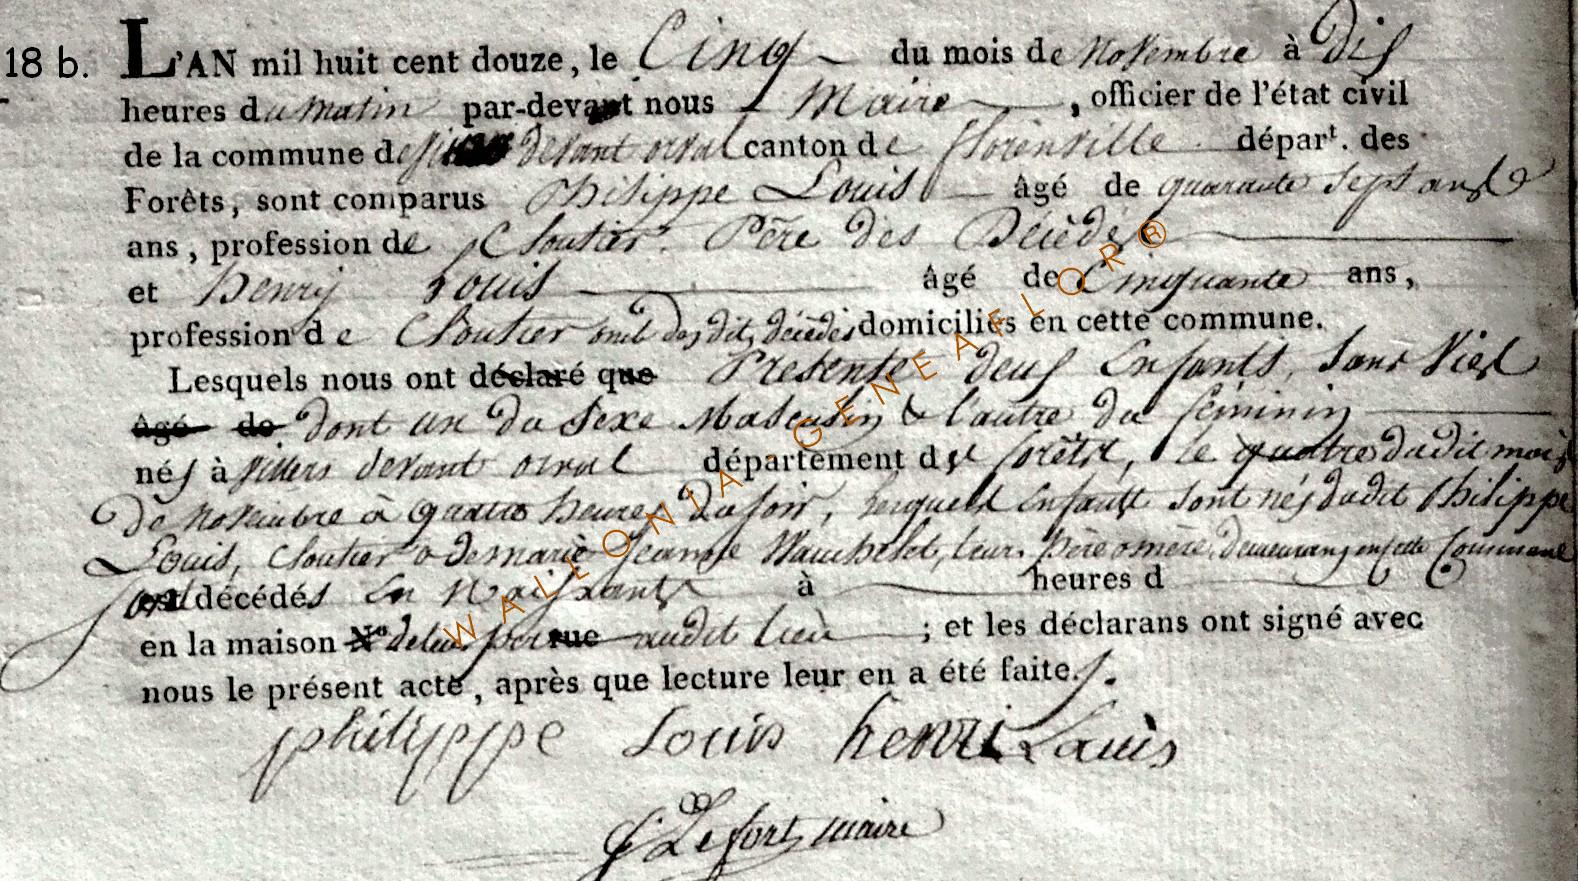 18 b.
L'AN mil huit cent douze, le Cinq du mois de Novembre à dix
heures du matin par-devant nous Maire, officier de l'état civil
de la commune de devant orval canton de florenville départ. des
Forêts, sont comparus Philippe Louis âgé de quarante sept ans
ans, profession de Cloutier. Père des Décédés
et Henry Louis âgé de Cinquante ans,
profession de Cloutier oncle des dits décédés domiciliés en cette commune.
Lesquels nous ont déclaré que Présenté deux Enfants, sans Vies
âgé de dont un du Sexe Masculin & l'autre du féminin
nés à villers devant orval département des forêts, le quatre dudit mois
De Novembre à quatre heures du soir, lesquels Enfants sont nés dudit Philippe
Louis, Cloutier & de marie Jeanne Wauthelet, leurs Père & mère, demeurans en cette Commune
sont décédés En Naissants à heures d
en la maison N° de leur père rue audit lieu ; et les déclarans ont signé avec
nous le présent acte, après que lecture leur en a été faite.
philippe Louis henri Louis
Lefort maire
WALLONIA-GENEAFLOR®